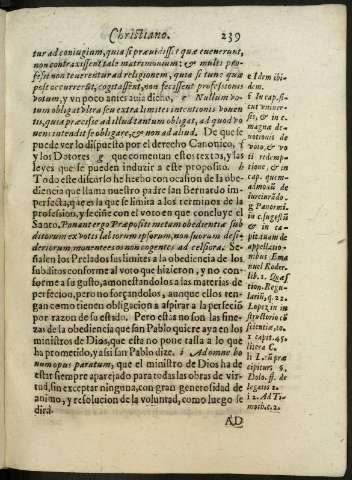 Christiano. 239
tur ad coniugium, quia si præuidissēt quæ euenerunt,
non contraxissent tale matrimonium: & multi pro-
fessi non tenerentur ad religionem, quia si tunc quæ
post occurrerūt, cogitassent, non fecissent professionis
votum, y vn poco antes auia dicho, g Nullum vo-
tum obligat vltra seu extra limites intentionis vouen
tis, quia præcise ad illud tantum obligat, ad quod vo
uens intendit se obligare, & non ad aliud. De que se
puede ver lo dispuesto por el derecho Canonico, f
y los Dotores g que comentan estos textos, y las
leyes que se pueden induzir a este proposito.
Todo este discurso he hecho con ocasion de la obe-
diencia que llama nuestro padre san Bernardo im-
perfecta, q̃ es a la que se limita a los terminos de la
profession, y se ciñe con el voto en que concluye el
Santo, Ponant ergo Præpositi metum obedientiæ sub
ditorum ex votis labiorum ipsorum, non suorum desi-
deriorum, monentes eos non cogentes ad celsiora. Se-
ñalen los Prelados sus limites a la obediencia de los
subditos conforme al voto que hizieron, y no con-
forme a su gusto, amonestandolos a las materias de
perfecion, pero no forçandolos, aunque ellos ten-
gan como tienen obligacion a aspirar a la perfeciō
por razon de su estado. Pero estas no son las fine-
zas de la obediencia que san Pablo quiere aya en los
ministros de Dios, que esta no pone tassa a lo que
ha prometido, y assi san Pablo dize. i Ad omne bo
num opus paratum, que el ministro de Dios ha de
estar siempre aparejado para todas las obras de vir-
tud, sin exceptar ninguna, con gran generosidad de
animo, y resolucion de la voluntad, como luego se
dirà.
AD
e Idem ibi-
dem.
f In cap. si-
cut vniuer-
si, & in c.
magnæ de-
notionis de
voto, & vo
ti redemp-
tione, & in
cap. quem-
admodū de
iureiurādo.
g Panormi.
in c. sugestū
& in ca-
pit. tuam de
appellatio-
nibus Ema
nuel Roder.
lib. 1. Quæs
tion. Regu-
lariū, q. 22.
Lopez in in
structorio cō
scientiæ, to.
1. capit. 45.
litera C.
h I. cū præ
cipitur 5.
Dolo. ff. de
legatis 2.
i 2. Ad Ti-
moth. c. 2.